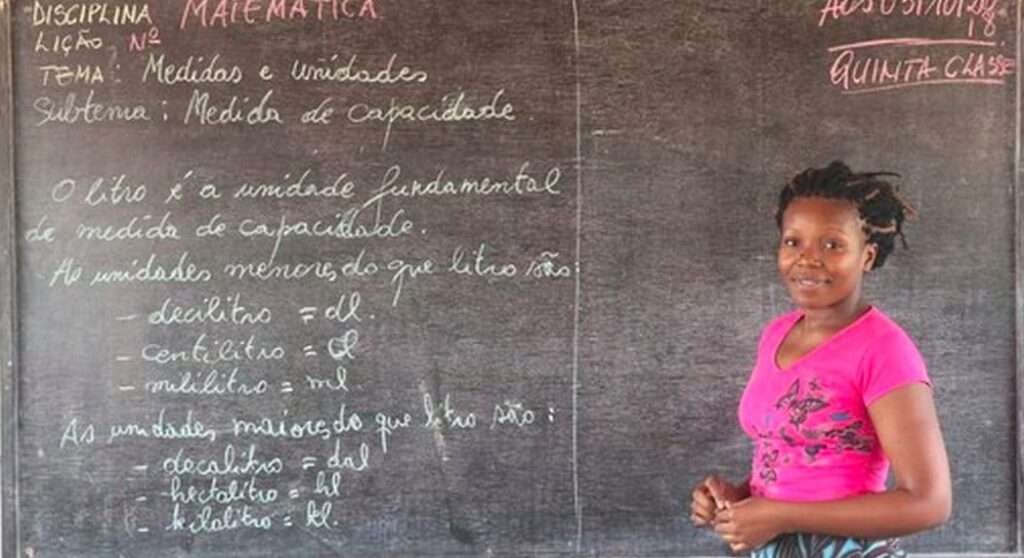 DISCIPLINA MATEMÁTICA
LIÇÃO Nº
TEMA: Medidas e unidades
Subtema: Medida de capacidade.
O litro é a unidade fundamental
de medida de capacidade.
As unidades menores do que litro são:
- decilitro = dl.
- centilitro = cl
- mililitro = ml
As unidades maiores do que litro são:
- decalitro = dal
- hectalitro = hl
- kilalitro = kl.
QUINTA CLASSE